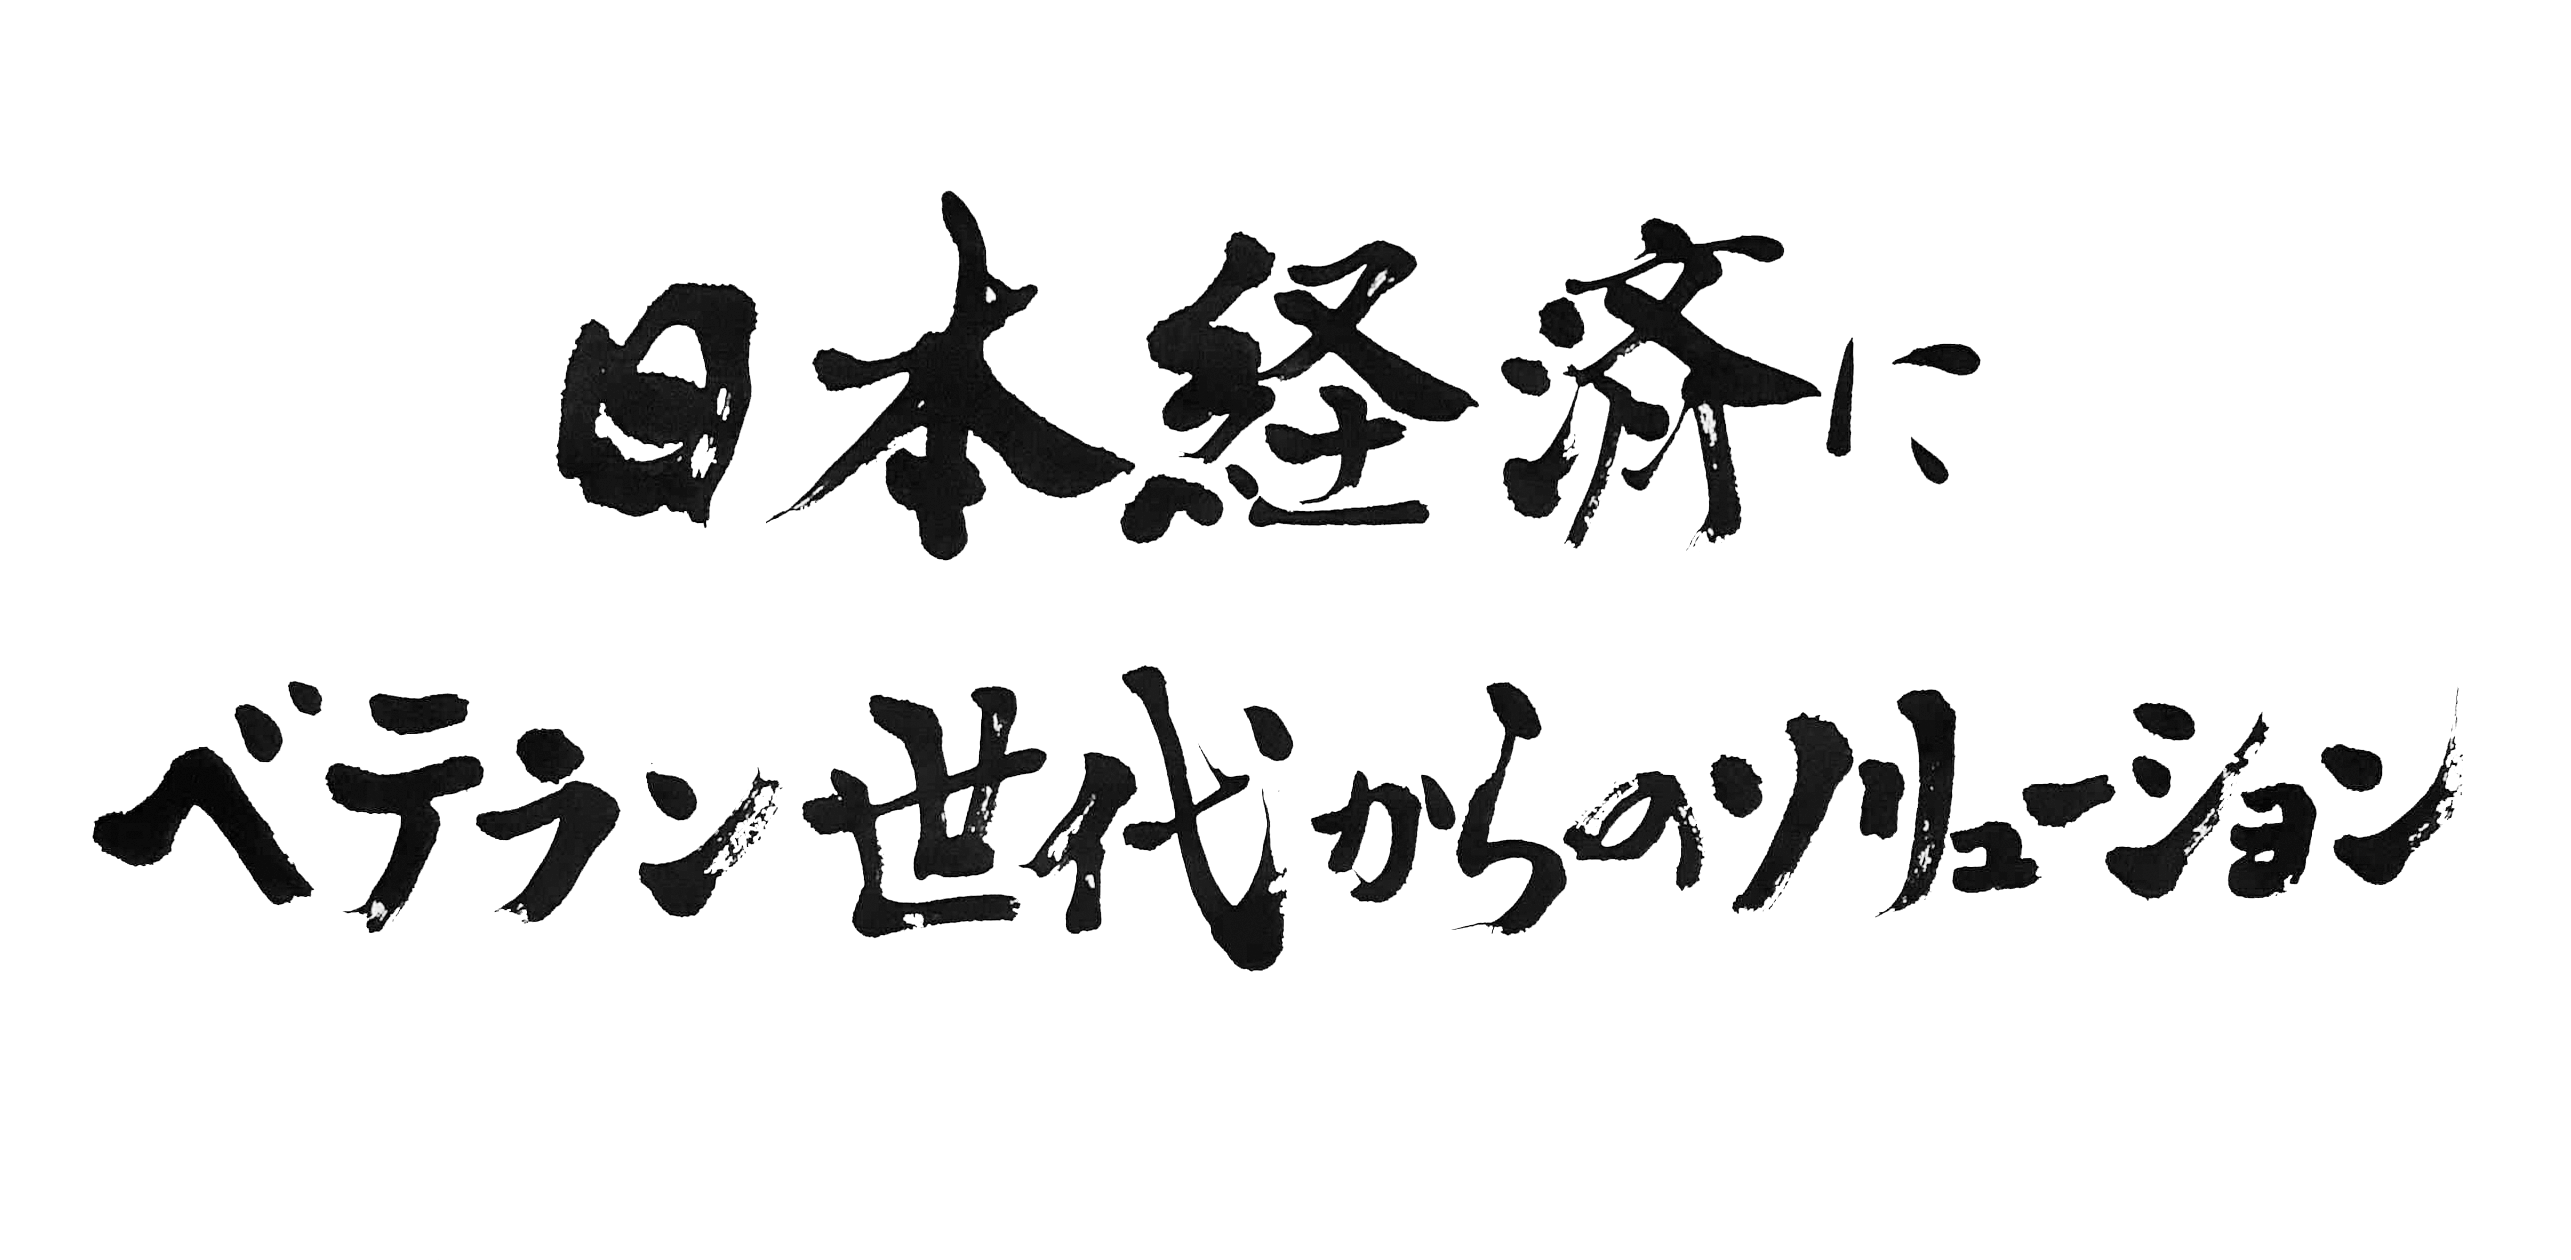 日本経済に
ベテラン世代からのソリューション